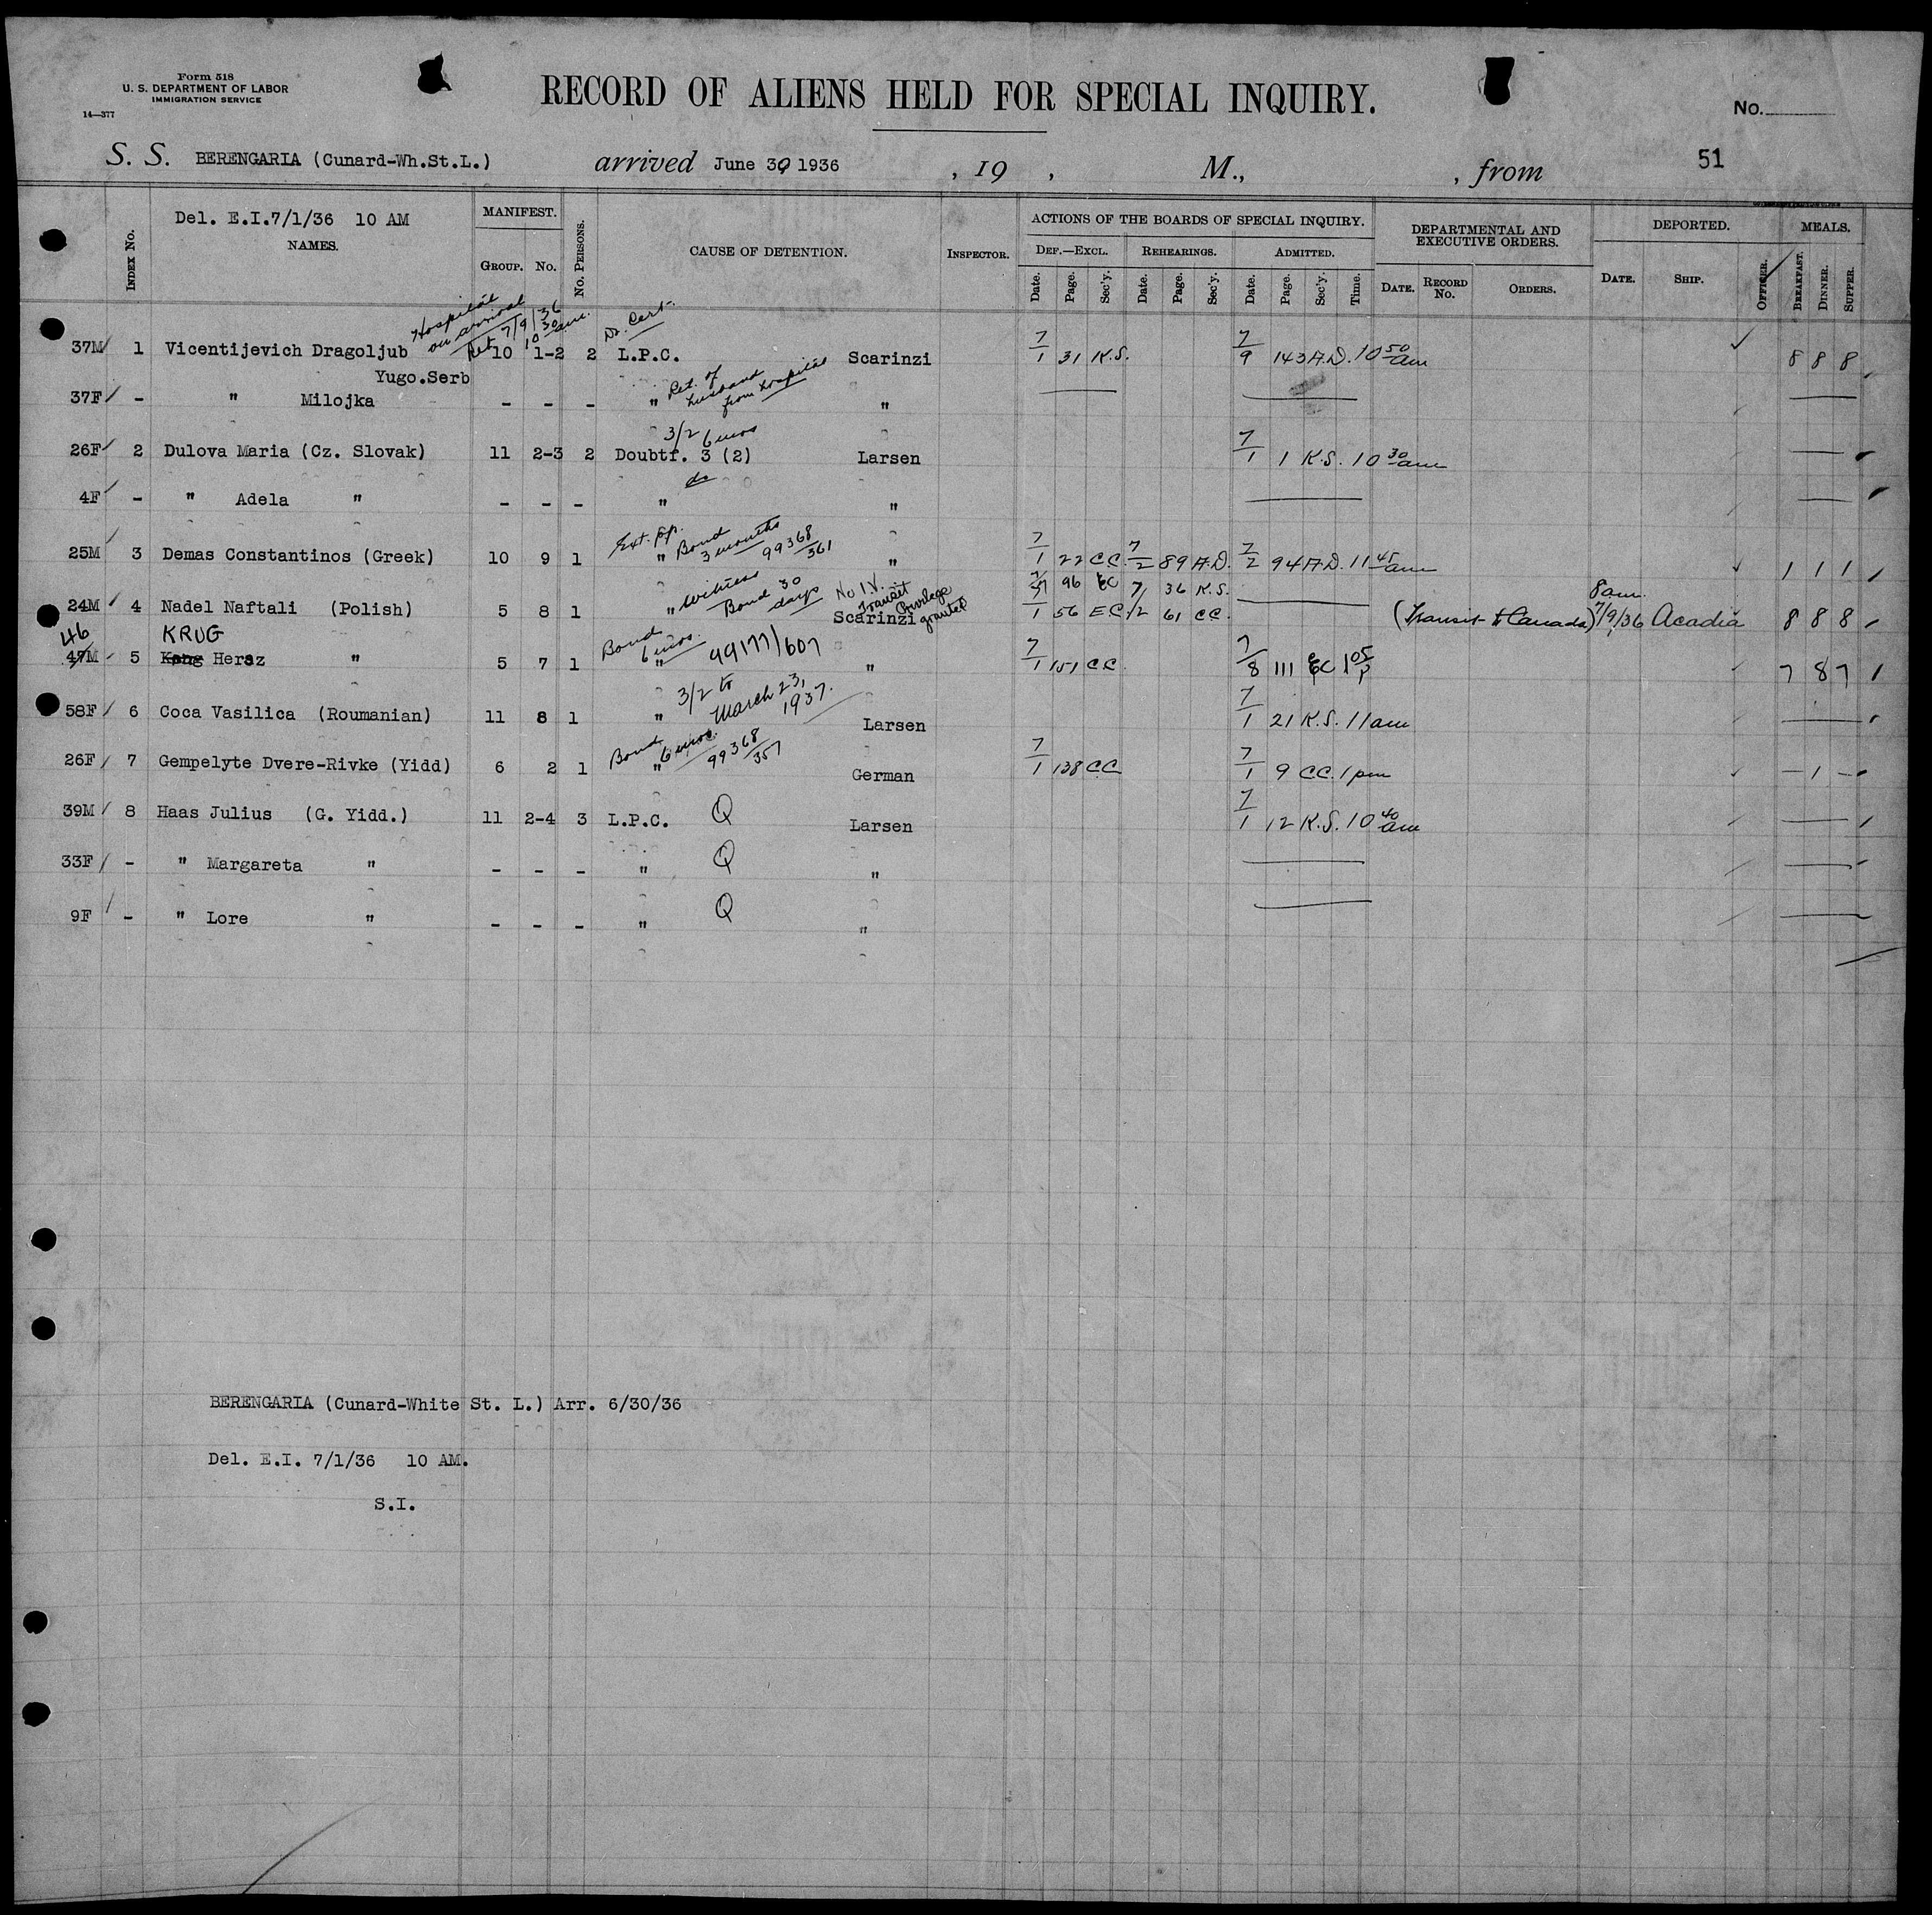 Form 518
U. S. DEPARTMENT OF LABOR
IMMIGRATION SERVICE
14—377
RECORD OF ALIENS HELD FOR SPECIAL INQUIRY.
No.
S. S. BERENGARIA (Cunard-Wh.St.L.) arrived June 30 1936 , 19 , M., , from 51
Del. E.I.7/1/36 10 AM
INDEX No. NAMES. MANIFEST. GROUP. No. No. PERSONS. CAUSE OF DETENTION. INSPECTOR. ACTIONS OF THE BOARDS OF SPECIAL INQUIRY. DEPARTMENTAL AND EXECUTIVE ORDERS. DEPORTED. MEALS.
DEF.—EXCL. REHEARINGS. ADMITTED.
Date. Page. Sec'y. Date. Page. Sec'y. Date. Page. Sec'y. Time. DATE. RECORD No. ORDERS. DATE. SHIP. OFFICER. BREAKFAST. DINNER. SUPPER.
Hospital on arrival
Ret 7/9/36 10 30 am.
Dr. Cert.
37M 1 Vicentijevich Dragoljub 10 1-2 2 L.P.C. Scarinzi 7/1 31 K.S. 7/9 143 A.D. 10 50 am 8 8 8
Yugo.Serb
37F - " Milojka - - - " Ret. of husband from hospital "
3/2 6 mos
26F 2 Dulova Maria (Cz. Slovak) 11 2-3 2 Doubtf. 3 (2) Larsen 7/1 1 K.S. 10 30 am
do
4F - " Adela " - - - " "
Ext. pp. Bond 3 months 99368/361
25M 3 Demas Constantinos (Greek) 10 9 1 " " 7/1 22 C.C. 7/2 89 A.D. 7/2 94 A.D. 11 45 am 1 1 1
Witness Bond 30 days No I.V. Transit Privilege granted
96 EC 7/ 36 K.S. 8 am.
24M 4 Nadel Naftali (Polish) 5 8 1 " Scarinzi 7/1 56 E C 7/2 61 CC. (Transit to Canada) 7/9/36 Acadia 8 8 8
46 KRUG
47M 5 Kang Hersz " 5 7 1 " Bond 6 mos. 99177/607 " 7/1 151 CC 7/8 111 EC 1 05 P 7 8 7
3/2 to March 23, 1937.
58F 6 Coca Vasilica (Roumanian) 11 8 1 " Larsen 7/1 21 K.S. 11 am
Bond 6 mos. 99368/357
26F 7 Gempelyte Dvere-Rivke (Yidd) 6 2 1 " German 7/1 138 CC 7/1 9 CC. 1 pm - 1 -
39M 8 Haas Julius (G. Yidd.) 11 2-4 3 L.P.C. Q Larsen 7/1 12 K.S. 10 40 am
33F - " Margareta " - - - " Q "
9F - " Lore " - - - " Q "
BERENGARIA (Cunard-White St. L.) Arr. 6/30/36
Del. E.I. 7/1/36 10 AM.
S.I.